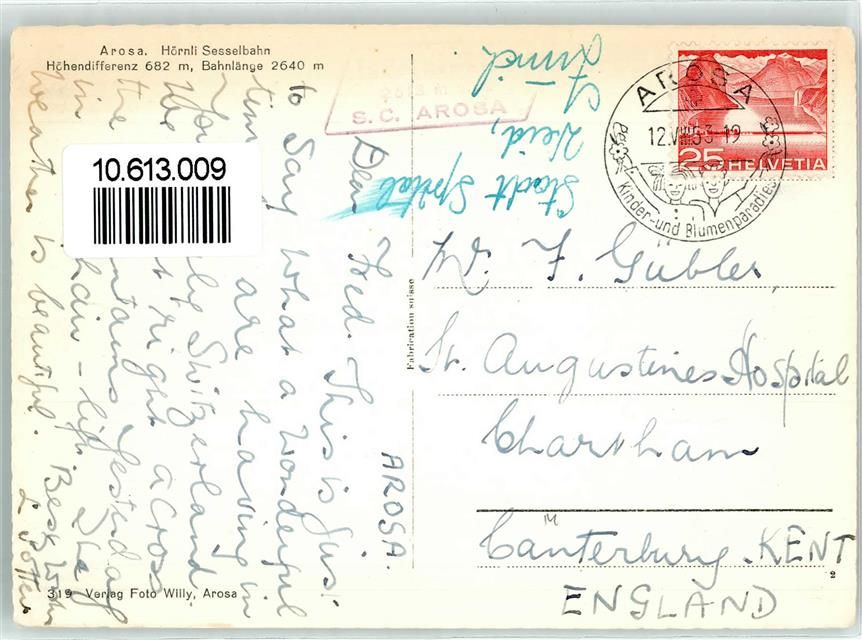 Arosa. Hörnli Sesselbahn
Höhendifferenz 682 m, Bahnlänge 2640 m
S. C. AROSA
10.613.009
AROSA.
Dear Fred. This is jus.
to say what a wonderful
time are having in
Switzerland
the right across
the mountains yesterday
in chair - lift. The
weather is beautiful. Best Wishes
Fabrication suisse
Stadt Spital
Weid,
Zürich
AROSA
12.VIII.53-19
Kinder- und Blumenparadies
25 HELVETIA
F. Gübler,
St. Augustines Hospital
Chartham
Canterbury. KENT
ENGLAND
319 Verlag Foto Willy, Arosa